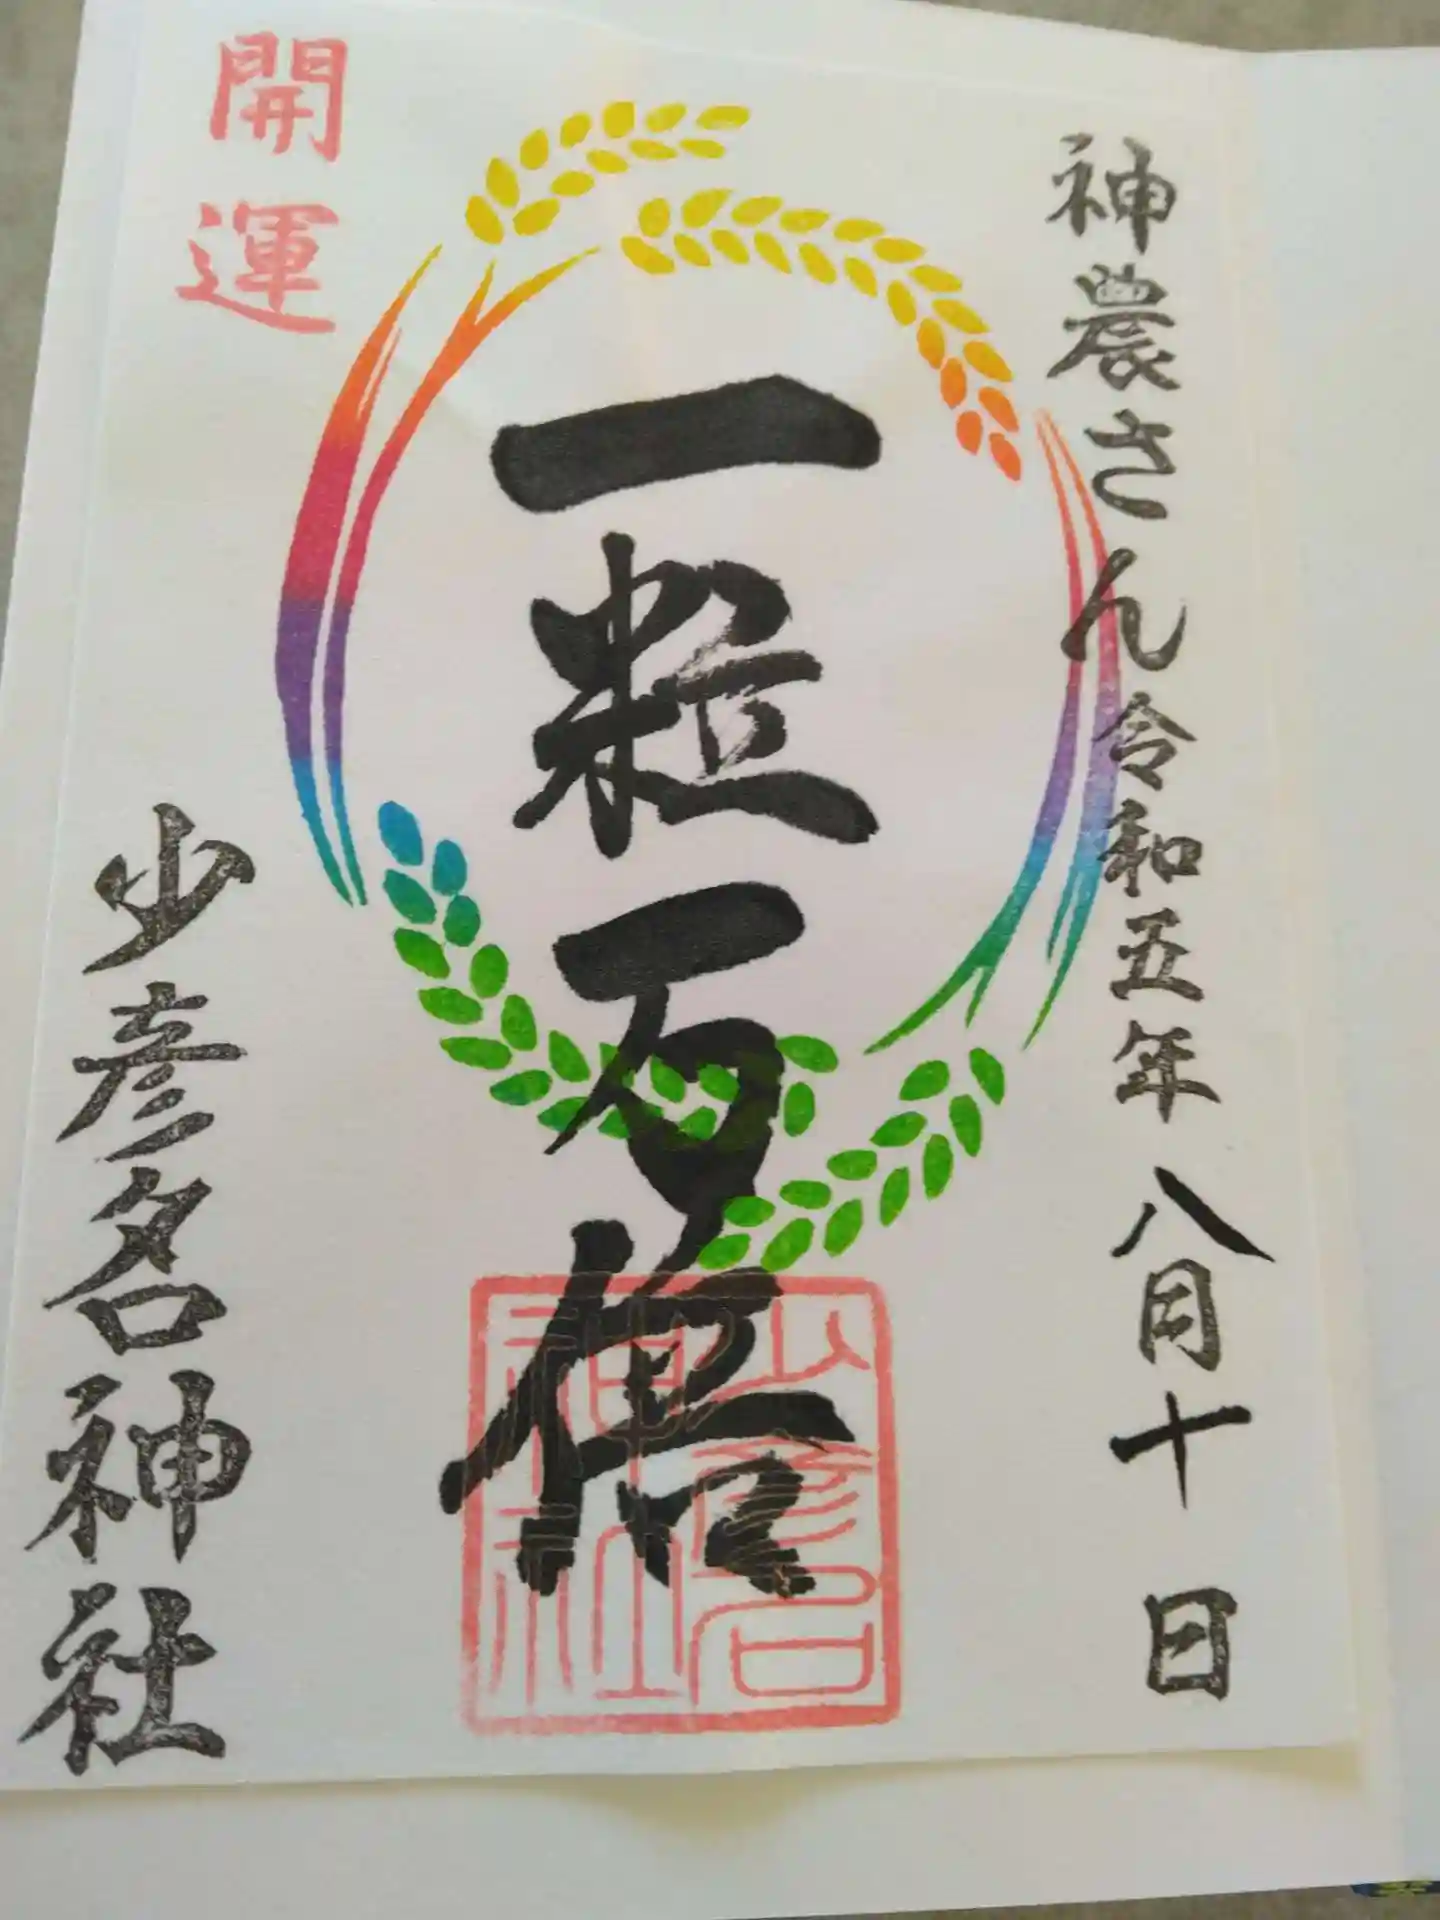 神農さん 令和五年 八月十日
一粒万倍
少彦名神社
開運
少彦名神社